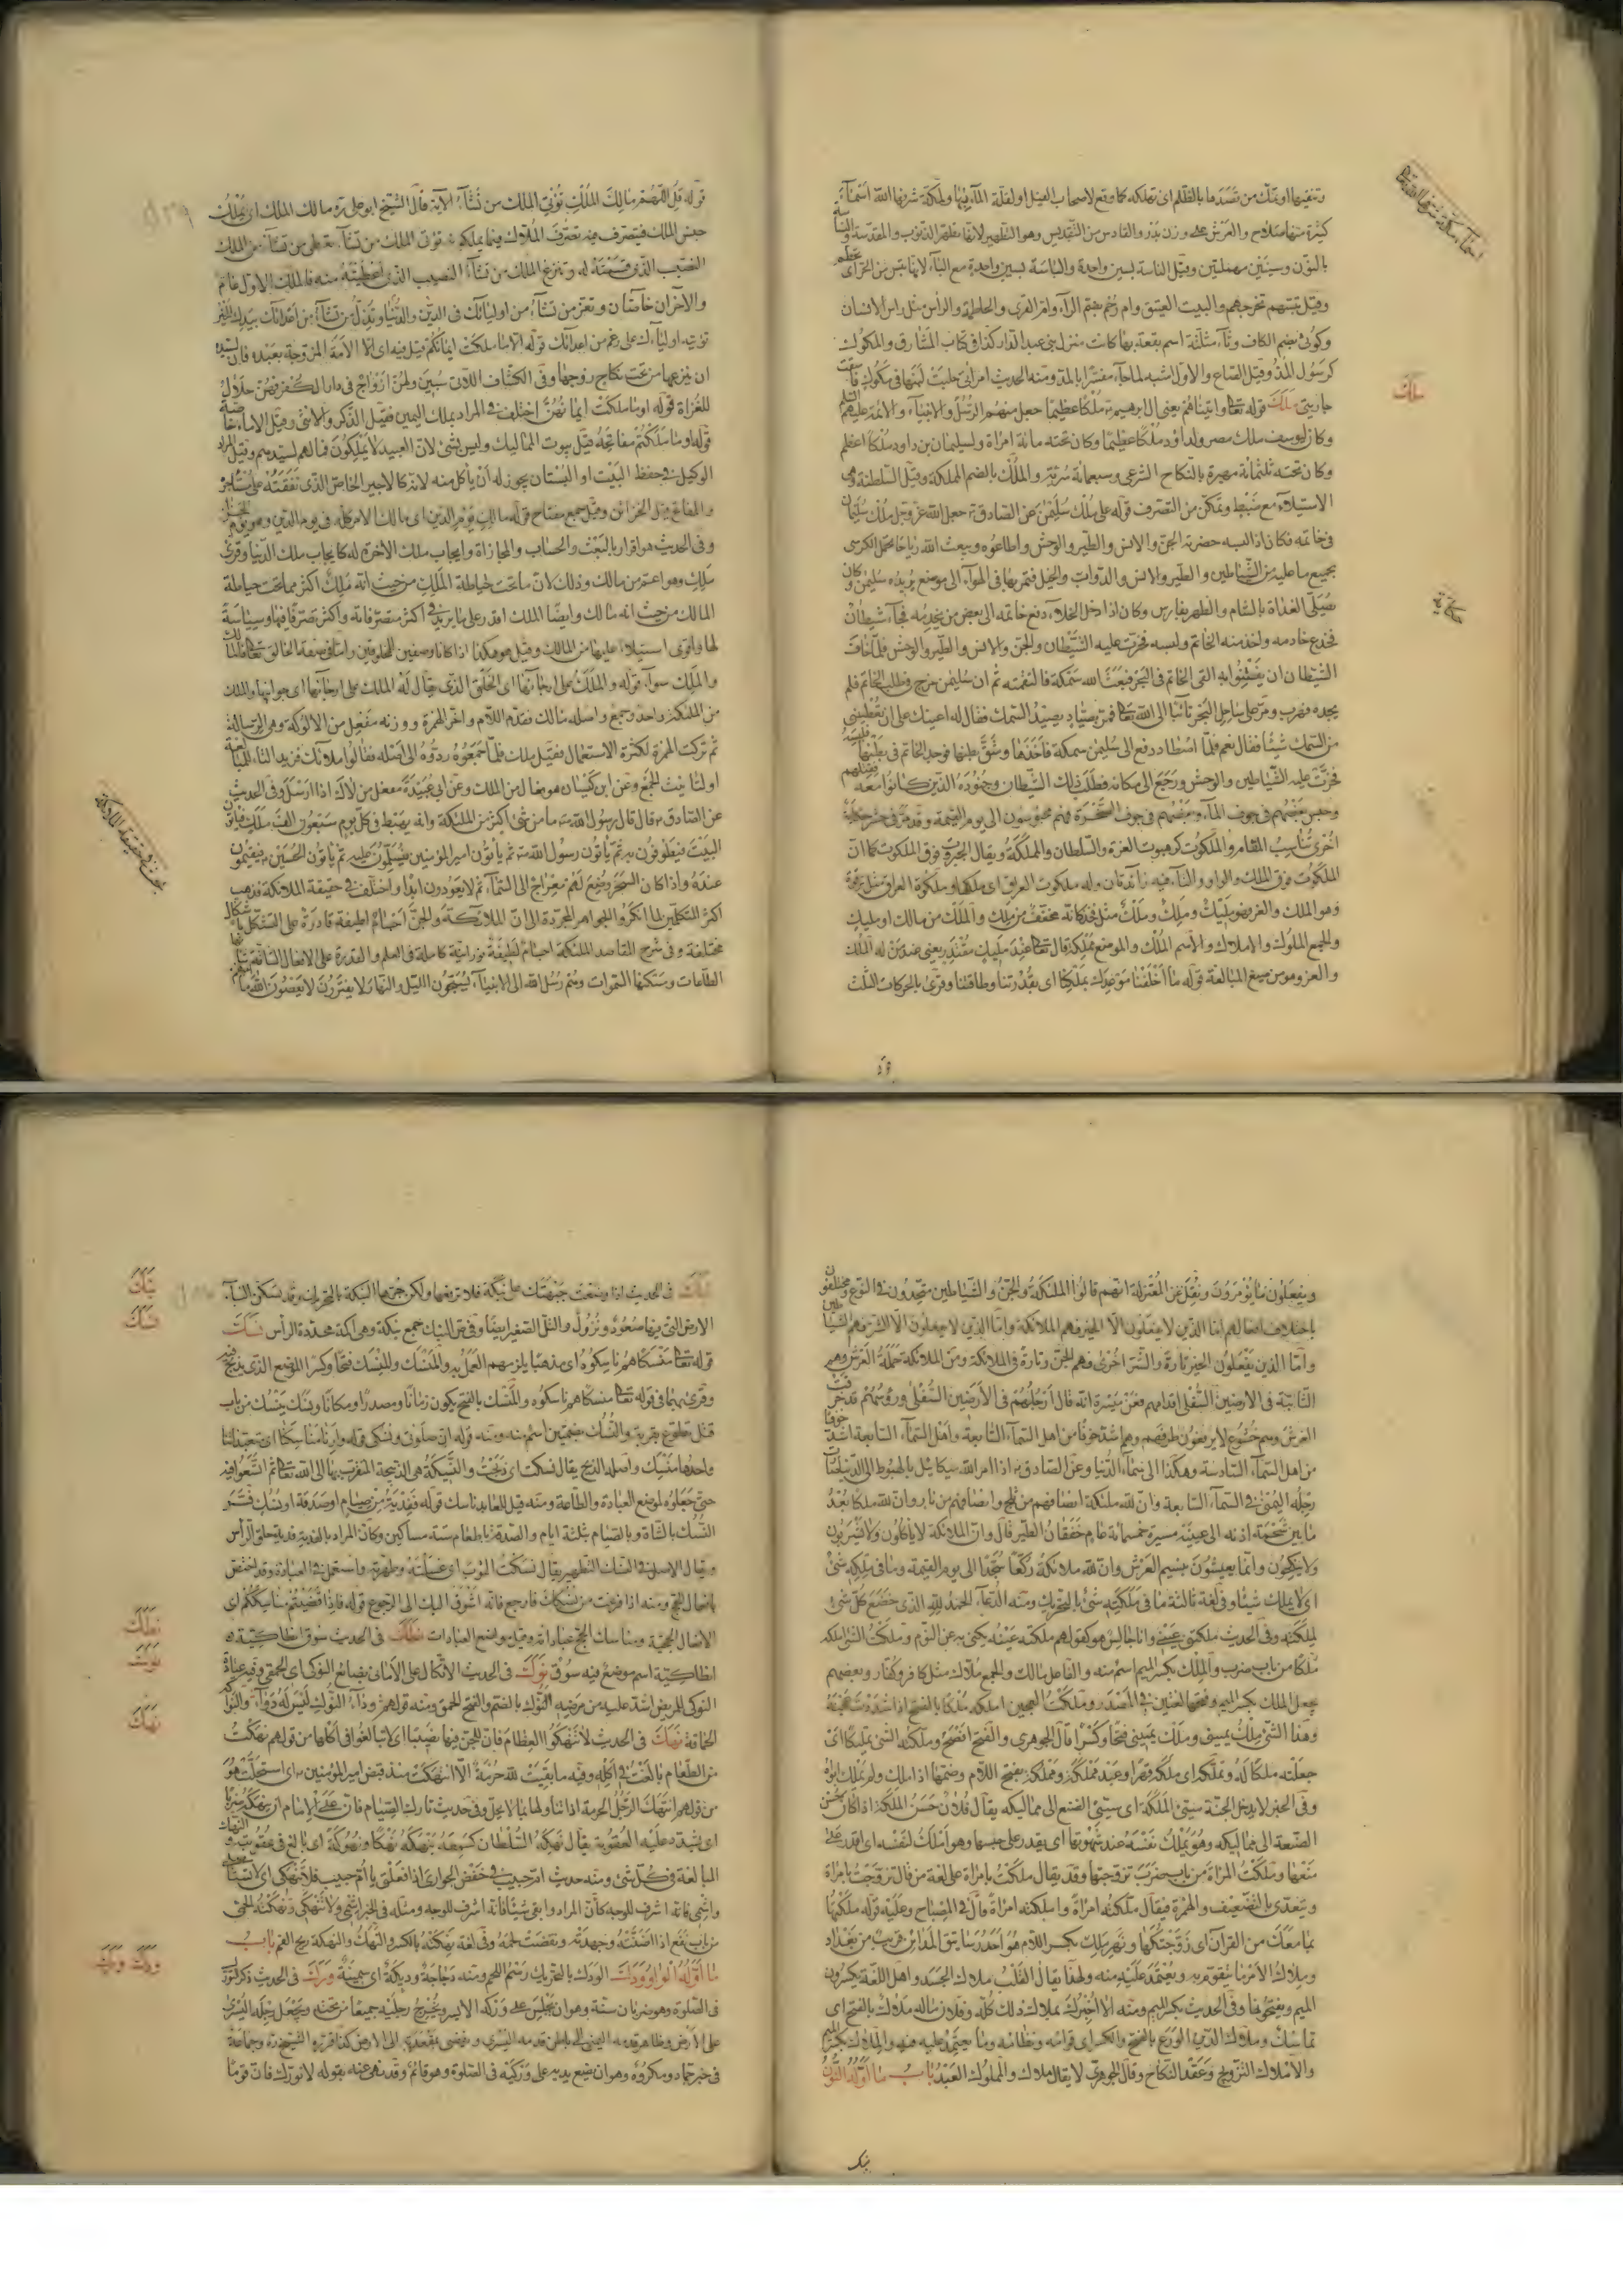 وتنفيها او تمكّ من قصدها بالظلم اى تهلكه كما وقع لاصحاب الفيل او لقلة الماء بها ولمكة شرفها الله اسماء
كثيرة منها صلاح والعرش على وزن بدر والقادس من التقديس وهو التطهير لانها تطهر الذنوب والمقدسة والناسة
بالنون وسينين مهملتين وقيل الناسة بسين واحدة والباسة بسين واحدة مع الباء لانها تبس من
وقيل تبسهم تخرجهم والبيت العتيق وام رحم بضم الراء وام القرى والحاطمة والراس مثل راس الانسان
وكوثى بضم الكاف وثاء مثلثة اسم بقعة بها كانت منزل بنى عبد الدار كذا فى كتاب المشارق والمكوك
كرسول المد وقيل الصاع والاول اشبه لما جاء مفسرا بالمد ومنه الحديث امرأتى حلبت لبنها فى مكوك فاسقت
جاريتى ملك قوله تعالى واتيناهم يعنى ال ابرهيم ملكا عظيما جعل منهم الرسل والانبياء والائمة عليهم السلم
وكان ليوسف ملك مصر ولداود ملكا عظيما وكان تحته مائة امراة ولسليمان بن داود ملكا اعظم
وكان تحته ثلثمائة مهيرة بالنكاح الشرعى وسبعمائة سرية والملك بالضم المملكة وقيل السلطنة وهى
الاستيلاء مع ضبط وتمكن من التصرف قوله على ملك سليمن عن الصادق جعل الله عز وجل ملك سليمان
فى خاتمه فكان اذا لبسه حضرته الجن والانس والطير والوحش واطاعوه ويبعث الله رياحا تحمل الكرسى
بجميع ما عليه من الشياطين والطير والانس والدواب والخيل فتمر بها فى الهواء الى موضع يريده سليمن وكان
يصلى الغداة بالشام والظهر بفارس وكان اذا دخل الخلاء دفع خاتمه الى بعض من يخدمه فجاء شيطان
فخدع خادمه واخذ منه الخاتم ولبسه فخرت عليه الشيطان والجن والانس والطير والوحش فلما خاف
الشيطان ان يفطنوا به القى الخاتم فى البحر فبعث الله سمكة فالتقمته ثم ان سليمن خرج فى طلب الخاتم فلم
يجده فهرب ومر على ساحل البحر تائبا الى الله تعالى فمر بصياد يصيد السمك فقال له اعينك على ان تعطينى
من السمك شيئا فقال نعم فلما اصطاد دفع الى سليمن سمكة فاخذها وشق بطنها فوجد الخاتم فى بطنها فلبسه
فخرت عليه الشياطين والوحش ورجع الى مكانه فطلب ذلك الشيطان وجنوده الذين كانوا معه فقتلهم
وحبس بعضهم فى جوف الماء وبعضهم فى جوف الصخرة فهم محبوسون الى يوم القيمة وقد مر فى حكاية
اخرى تناسب المقام والملكوت كرهبوت العزة والسلطان والمملكة ويقال الجبروت فوق الملكوت كما ان
الملكوت فوق الملك والواو والتاء فيه زائدتان وله ملكوت العراق اى ملكها وملكوة العراق مثل ترقوة
وهو الملك والعز فهو مليك وملك وملك مثل فخذ كانه مخفف من ملك والملك من مالك او مليك
والجمع الملوك والاملاك والاسم الملك والموضع مملكة قال تعالى عند مليك مقتدر يعنى عند من له الملك
والعز وهو من صيغ المبالغة قوله ما اخلفنا موعدك بملكنا اى بقدرتنا وطاقتنا وقرئ بالحركات الثلث
اسماء مكة شرفها الله
ملك
حكاية
قوله قل اللهم مالك الملك تؤتى الملك من تشاء الاية قال الشيخ ابو على مالك الملك اى يملك
جنس الملك فيتصرف فيه تصرف الملاك فيما يملكونه تؤتى الملك من تشاء تعطى من تشاء من الملك
النصيب الذى قسمته له وتنزع الملك من تشاء النصيب الذى اعطيته منه فالملك الاول عام
والاخران خاصان وتعز من تشاء من اوليائك فى الدين والدنيا وتذل من تشاء من اعدائك بيدك الخير
تؤتيه اولياءك على رغم من اعدائك قوله الا ما ملكت ايمانكم قيل فيه اى الا الامة المزوجة بعبده فان لسيده
ان ينزعها من تحت نكاح زوجها وفى الكشاف اللاتى سبين ولهن ازواج فى دار الكفر فهن حلال
للغزاة قوله او ما ملكت ايمانهن اختلف فى المراد بملك اليمين فقيل الذكر والانثى وقيل الاماء خاصة
قوله او ما ملكتم مفاتحه قيل بيوت المماليك وليس بشئ لان العبيد لا يملكون فمالهم لسيدهم وقيل المراد
الوكيل فى حفظ البيت او البستان يجوز له أن ياكل منه لانه كالاجير الخاص الذى نفقته على مستاجر
والمفاتح قيل الخزائن وقيل جمع مفتاح قوله مالك يوم الدين اى مالك الامر كله فى يوم الدين وهو يوم الجزاء
وفى الحديث هو اقرار بالبعث والحساب والمجازاة وايجاب ملك الاخرة له كايجاب ملك الدنيا وقرئ
ملك وهو اعم من مالك وذلك لان ما تحت حياطة الملك من حيث انه ملك اكثر مما تحت حياطة
المالك من حيث انه مالك وايضا الملك اقدر على ما يريد فى اكثر متصرفاته واكثر تصرفا فيها وسياسة
لها واقوى استيلاء عليها من المالك وقيل هو هكذا اذا كانا وصفين للمخلوقين واما فى صفة الخالق تعالى فالمالك
والملك سواء قوله والملك على ارجائها اى الخلق الذى يقال له الملك على ارجائها اى جوانبها والملك
من الملئكة واحد وجمع واصله مالك فقدم اللام واخر الهمزة ووزنه مفعل من الالوكة وهى الرسالة
ثم تركت الهمزة لكثرة الاستعمال فقيل ملك فلما جمعوه ردوه الى اصله فقالوا ملائك فزيد التاء للمبالغة
او لتانيث الجمع وعن ابن كيسان هو فعال من الملك وعن ابى عبيدة مفعل من لاك اذا ارسل وفى الحديث
عن الصادق قال قال رسول الله ما من شئ اكثر من الملئكة وانه يهبط فى كل يوم سبعون الف ملك فياتون
البيت فيطوفون به ثم ياتون رسول الله ثم ياتون امير المؤمنين فيسلمون عليه ثم ياتون الحسين فيقيمون
عنده واذا كان السحر وضع لهم معراج الى السماء ثم لا يعودون ابدا واختلف فى حقيقة الملائكة فذهب
اكثر المتكلمين لما انكروا الجواهر المجردة الى ان الملائكة والجن اجسام لطيفة قادرة على التشكل باشكال
مختلفة وفى شرح المقاصد الملئكة اجسام لطيفة نورانية كاملة فى العلم والقدرة على الافعال الشاقة شانها
الطاعات ومسكنها السموات وهم رسل الله الى الانبياء يسبحون الليل والنهار لا يفترون لا يعصون الله ما
بحث فى حقيقة الملائكة
ويفعلون ما يؤمرون ونقل عن المعتزلة انهم قالوا الملئكة والجن والشياطين متحدون فى النوع ومختلفون
باختلاف افعالهم اما الذين لا يفعلون الا الخير فهم الملائكة واما الذين لا يفعلون الا الشر فهم الشياطين
واما الذين يفعلون الخير تارة والشر اخرى فهم الجن
الثابتة فى الارضين السفلى اقدامهم فعن ميسرة انه قال ارجلهم فى الارضين السفلى ورؤسهم قد خرقت
العرش وهم خشوع لا يرفعون طرفهم وهم اشد خوفا من اهل السماء السابعة واهل السماء السابعة اشد خوفا
من اهل السماء السادسة وهكذا الى سماء الدنيا وعن الصادق اذا امر الله ميكائيل بالهبوط الى الدنيا
رجله اليمنى فى السماء السابعة وان لله ملئكة انصافهم من ثلج وانصافهم من نار وان لله ملكا بعد
ما بين شحمة اذنه الى عينه مسيرة خمسمائة عام خفقان الطير قال وان الملائكة لا ياكلون ولا يشربون
ولا ينكحون وانما يعيشون بنسيم العرش وان لله ملائكة ركعا سجدا الى يوم القيمة وما فى ملكه شئ
اى لا يملك شيئا وفى لغة ثالثة ما فى ملكته شئ بالتحريك ومنه الدعاء الحمد لله الذى خضع كل شئ
لملكته وفى الحديث ملكتنى عينى وانا جالس هو كقولهم ملكته عينه يكنى به عن النوم وملكت الشئ املكه
ملكا من باب ضرب والملك بكسر الميم اسم منه والفاعل مالك والجمع ملاك مثل كافر وكفار وبعضهم
يجعل الملك بكسر الميم وفتحها لغتين فى المصدر وملكت العجين املكه ملكا بالفتح اذا شددت عجنه
وهذا الشئ ملك يمينى وملك يمينى فتحا وكسرا قال الجوهرى والفتح افصح وملكه الشئ تمليكا اى
جعلته ملكا له وتملكه اى ملكه قهرا وعبد مملكة ومملكة بفتح اللام وضمها اذا ملك ولم يملك ابواه
وفى الخبر لا يدخل الجنة سيئ الملكة اى سيئ الصنع الى مماليكه يقال فلان حسن الملكة اذا كان حسن
الصنعة الى مماليكه وهو يملك نفسه عند شهوتها اى يقدر على حبسها وهو املك لنفسه اى اقدر على
منعها وملكت المراة من باب ضرب تزوجتها وقد يقال ملكت بامراة على لغة من قال تزوجت بامراة
ويتعدى بالتضعيف والهمزة فيقال ملكته امراة واملكته امراة قال فى المصباح وعليه قوله ملكتها
بما معك من القران اى زوجتكها ونهر ملك بكسر اللام هو احد رساتيق المدائن قريب من بغداد
وملاك الامر ما يتقوم به ويعتمد عليه منه ولهذا يقال القلب ملاك الجسد واهل اللغة يكسرون
الميم ويفتحونها وفى الحديث بكسر الميم ومنه الا اخبرك بملاك ذلك كله وفلان ماله ملاك بالفتح اى
تماسك وملاك الدين الورع بالفتح والكسر اى قوامه ونظامه وما يعتمد عليه فيه والملاك بكسر الميم
والاملاك التزويج وعقد النكاح وقال الجوهرى لا يقال ملاك والمملوك العبد باب ما اوله النون
نبك
نبك فى الحديث اذا وضعت جبهتك على نبكة فلا ترفعها ولكن جرها النبكة بالتحريك وقد تسكن الباء
الارض التى فيها صعود ونزول والتل الصغير ايضا وفى ق النبك جمع نبكة وهى اكمة محددة الراس نسك
قوله تعالى منسكا هم ناسكوه اى مذهبا يلزمهم العمل به والمنسك والمنسك فتحا وكسرا الموضع الذى يذبح فيه
وقرئ بهما فى قوله تعالى منسكا هم ناسكوه والمنسك بالفتح يكون زمانا ومصدرا ومكانا ونسك ينسك من باب
قتل تطوع بقربة والنسك بضمتين اسم منه ومنه قوله ان صلوتى ونسكى قوله وارنا مناسكنا اى متعبداتنا
واحدها منسك واصله الذبح يقال نسكت اى ذبحت والنسيكة هى الذبيحة المتقرب بها الى الله تعالى ثم اتسعوا فيه
حتى جعلوه لموضع العبادة والطاعة ومنه قيل للعابد ناسك قوله ففدية من صيام او صدقة او نسك فسر
النسك بالشاة وبالصيام بثلثة ايام والصدقة باطعام ستة مساكين وكان المراد بالفدية فدية حلق الراس
ويقال الاصل فى النسك التطهير يقال نسكت الثوب اى غسلته وطهرته واستعمل فى العبادة وقد اختص
بافعال الحج ومنه اذا فرغت من نسكك فارجع فانه اشوق اليك الى الرجوع قوله فاذا قضيتم مناسككم اى
الافعال الحجية ومناسك الحج عباداته وقيل مواضع العبادات نطك فى الحديث سوق انطاكية
انطاكية اسم موضع فيه سوق نوك فى الحديث الاتكال على الامانى بضائع النوكى اى الحمقى وفيه عيادة
النوكى للمريض اشد عليه من مرضه النوك بالضم والفتح الحمق ومنه قولهم وداء النوك ليس له دواء والنواكة
الحماقة نهك فى الحديث لا تنهكوا العظام فان للجن فيها نصيبا اى لا تبالغوا فى اكلها من قولهم نهكت
من الطعام بالغت فى اكله وفيه ما بقيت لله حرمة الا انتهكت منذ قبض امير المؤمنين اى استحلت هو
من قولهم انتهك الرجل الحرمة اذا تناولها بما لا يحل وفى حديث تارك الصيام فان على الامام ان ينهكه ضربا
اى يشدد عليه العقوبة يقال نهكه السلطان كسمعه ينهكه نهكا ونهوكة اى بالغ فى عقوبته والنهك
المبالغة فى كل شئ ومنه حديث ام حبيب فى خفض الجوارى اذا فعلت يا ام حبيب فلا تنهكى اى لا تستاصلى
واشمى فانه اشرق للوجه كان المراد وابقى شيئا فانه اشرق للوجه ومثله فى الخبر اشمى ولا تنهكى ونهكته الحمى
من باب نفع اذا اضنته وجهدته ونقصت لحمه وفى لغة نهكته بالكسر والنهك والنهكة ريح الفم باب
ما اوله الواو ودك الودك بالتحريك دسم اللحم ومنه دجاجة وديكة اى سمينة ورك فى الحديث ذكر التورك
فى الصلوة وهو ضربان سنة وهو ان يجلس على وركه الايسر ويخرج رجليه جميعا من تحته ويجعل رجله اليسرى
على الارض وظاهر قدمه اليمنى الى باطن قدمه اليسرى ويفضى بمقعدته الى الارض كذا قرره الشيخ وجماعة
فى خبر حماد ومكروه وهو ان يضع يديه على وركيه فى الصلوة وهو قائم وقد نهى عنه بقوله لا تورك فان قوما
نبك
نسك
نطك
نوك
نهك
ودك ورك